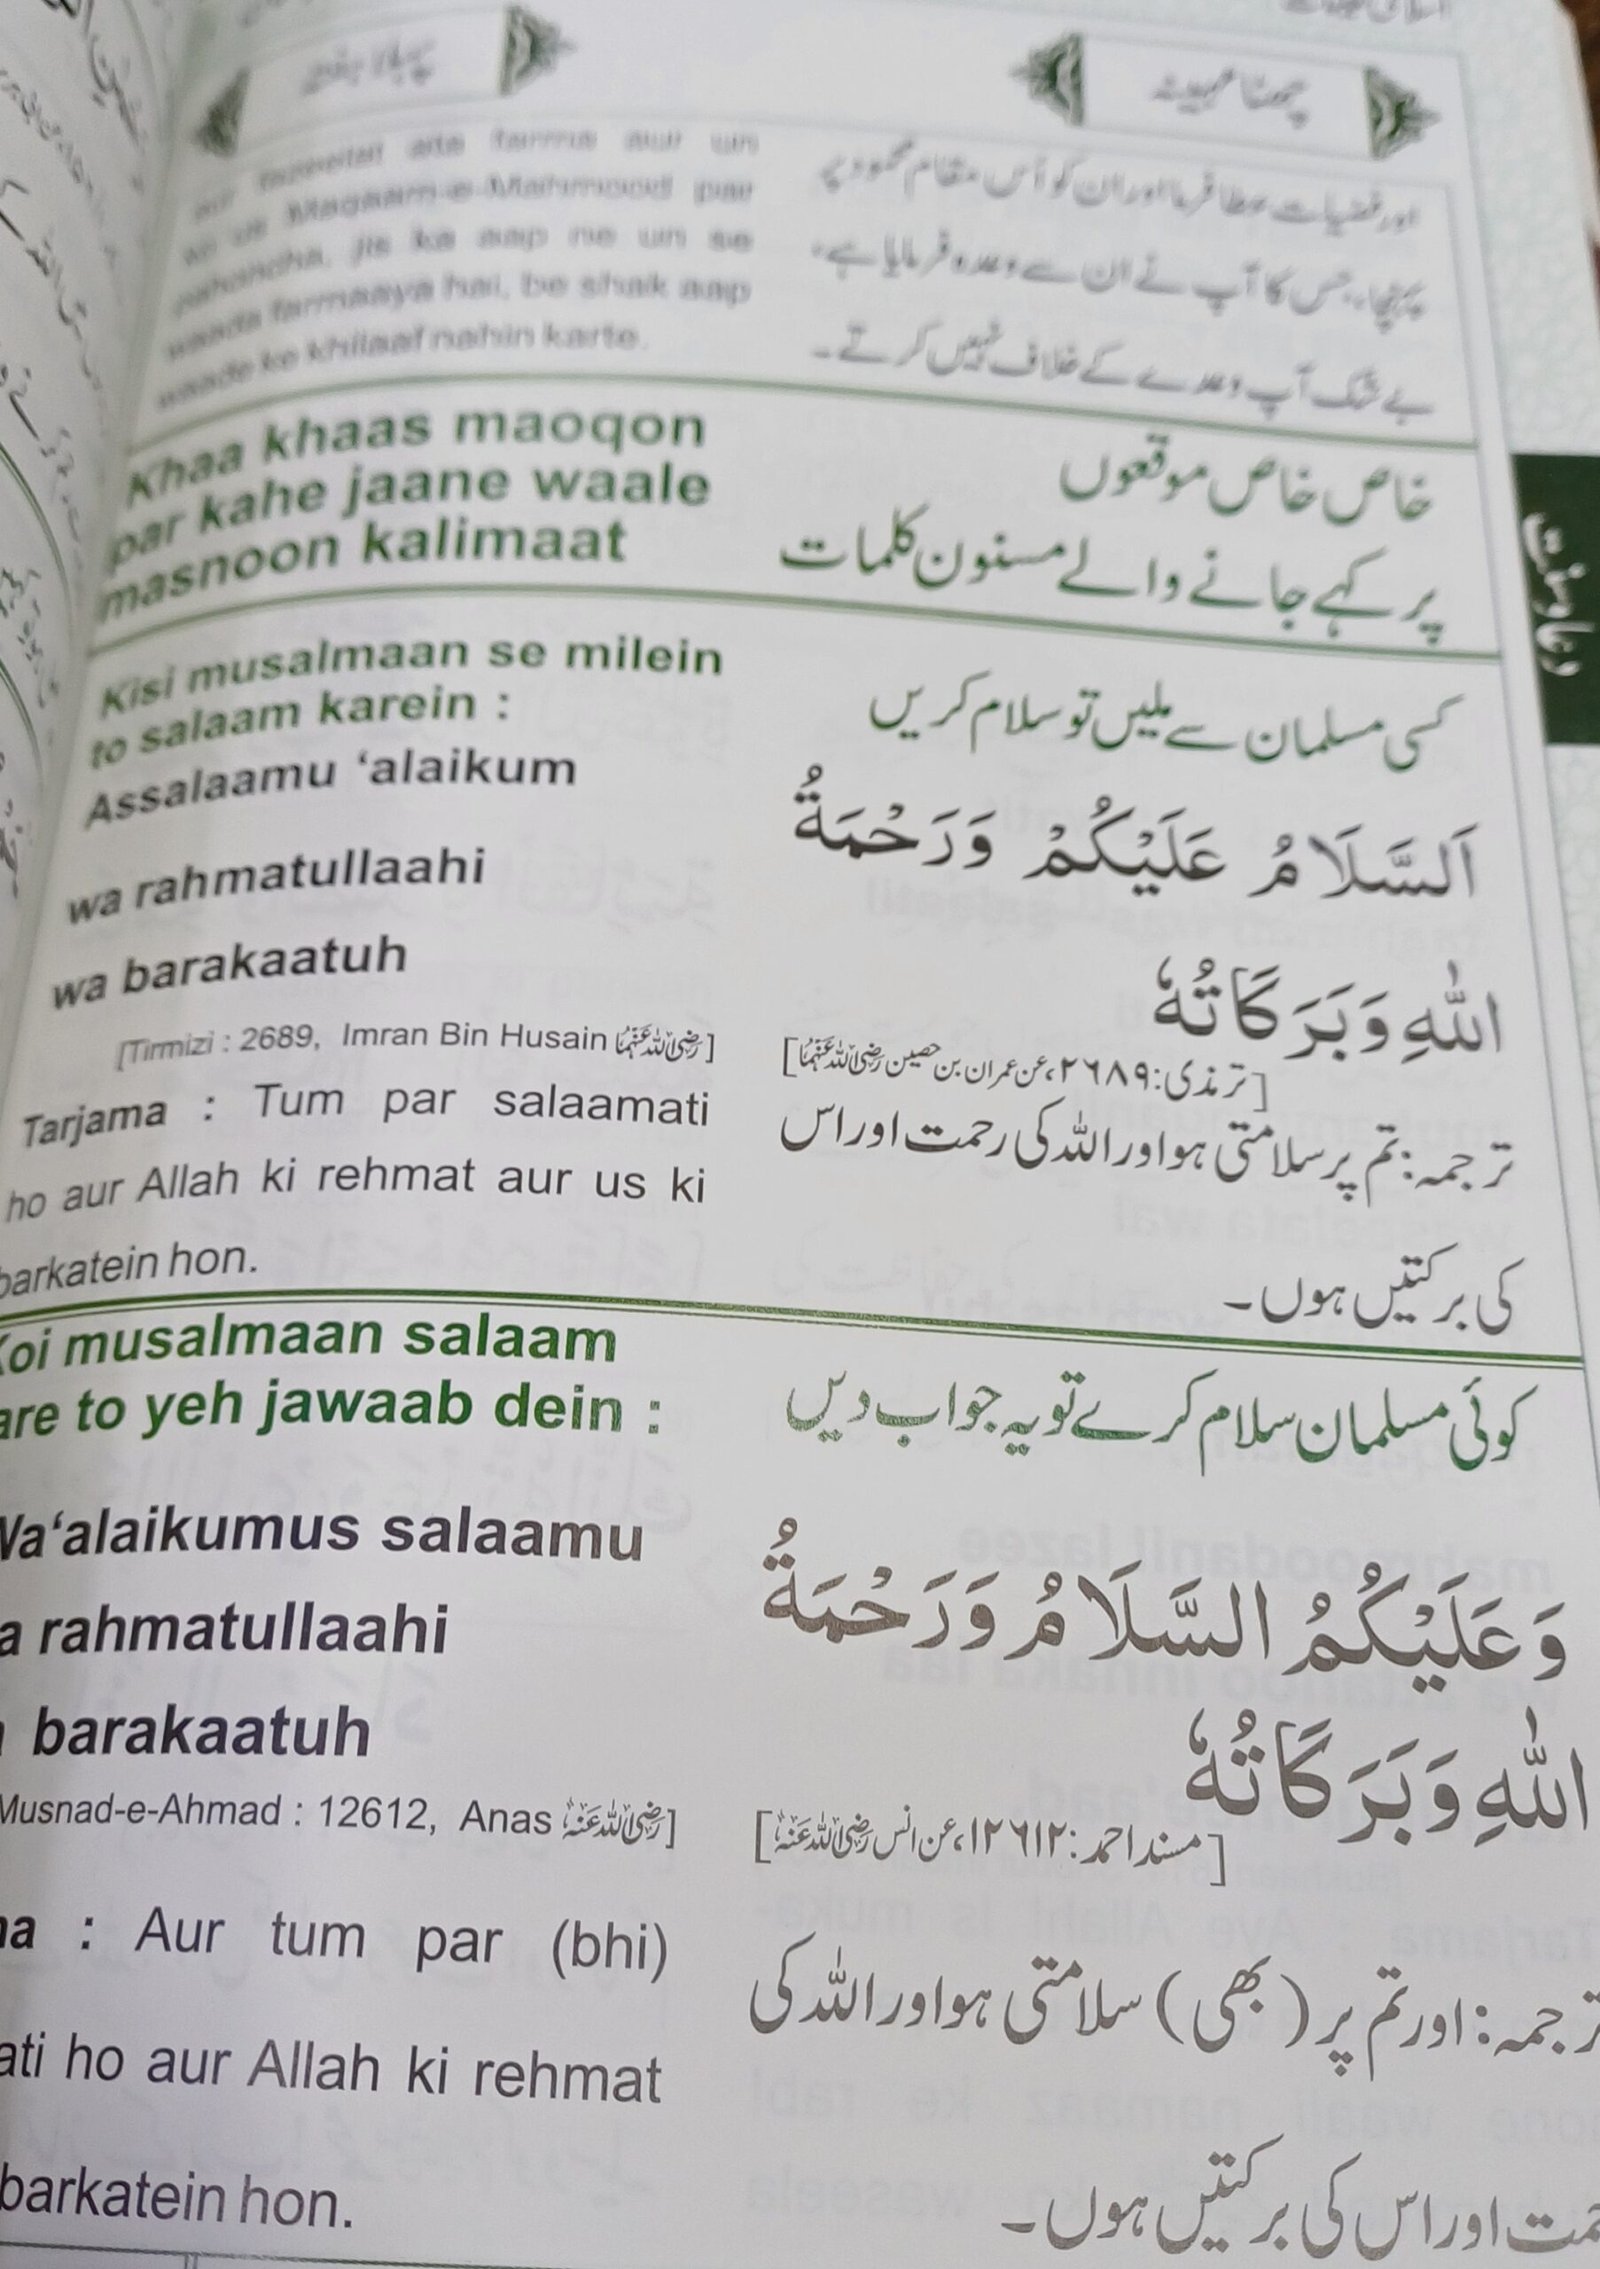 پہلا ہفتہ
چھٹا مہینہ
aur fazeelat ata farma aur un
ko us Maqaam-e-Mahmood par
pahoncha, jis ka aap ne un se
waada farmaaya hai, be shak aap
waade ke khilaaf nahin karte.
اور فضیلت عطا فرما اور ان کو اُس مقام محمود پر
پہنچا، جس کا آپ نے ان سے وعدہ فرمایا ہے،
بے شک آپ وعدے کے خلاف نہیں کرتے۔
Khaa khaas maoqon
par kahe jaane waale
masnoon kalimaat
خاص خاص موقعوں
پر کہے جانے والے مسنون کلمات
دعا و سنت
Kisi musalmaan se milein
to salaam karein :
کسی مسلمان سے ملیں تو سلام کریں
Assalaamu ‘alaikum
wa rahmatullaahi
wa barakaatuh
اَلسَّلَامُ عَلَيْكُمْ وَرَحْمَةُ
اللّٰهِ وَبَرَكَاتُهٗ
[Tirmizi : 2689, Imran Bin Husain رضی اللہ عنہما]
[ترمذی: ۲۶۸۹، عن عمران بن حصین رضی اللہ عنہما]
Tarjama : Tum par salaamati
ho aur Allah ki rehmat aur us ki
barkatein hon.
ترجمہ: تم پر سلامتی ہو اور اللہ کی رحمت اور اس
کی برکتیں ہوں۔
Koi musalmaan salaam
are to yeh jawaab dein :
کوئی مسلمان سلام کرے تو یہ جواب دیں
Wa‘alaikumus salaamu
a rahmatullaahi
barakaatuh
وَعَلَيْكُمُ السَّلَامُ وَرَحْمَةُ
اللّٰهِ وَبَرَكَاتُهٗ
Musnad-e-Ahmad : 12612, Anas رضی اللہ عنہ]
[مسند احمد: ۱۲۶۱۲، عن انس رضی اللہ عنہ]
ma : Aur tum par (bhi)
ati ho aur Allah ki rehmat
barkatein hon.
ترجمہ: اور تم پر (بھی) سلامتی ہو اور اللہ کی
حمت اور اس کی برکتیں ہوں۔